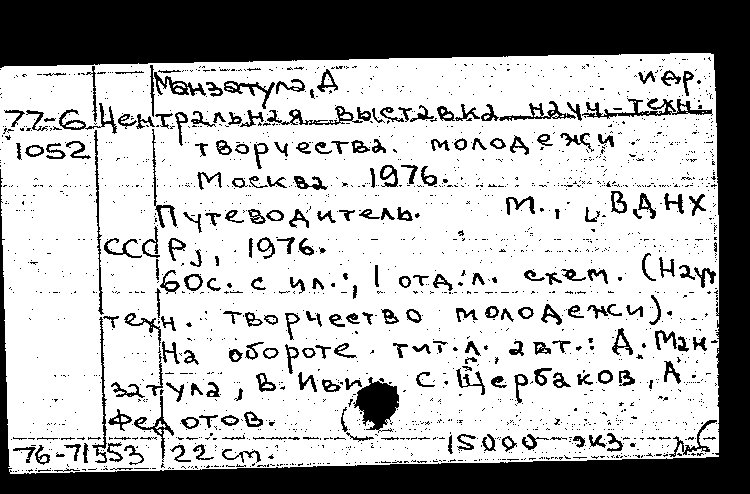 Манзатула, Д и др.
77-6 Центральная выставка науч.-техн.
1052 творчества молодежи.
Москва. 1976.
Путеводитель. М., [ВДНХ
СССР], 1976.
60с. с ил.; 1 отд. л. схем. (Науч.
техн. творчество молодежи).
На обороте тит. л. авт.: Д. Ман-
затула, В. С. Щербаков, А.
Федотов.
76-71553 22 см. 15000 экз.